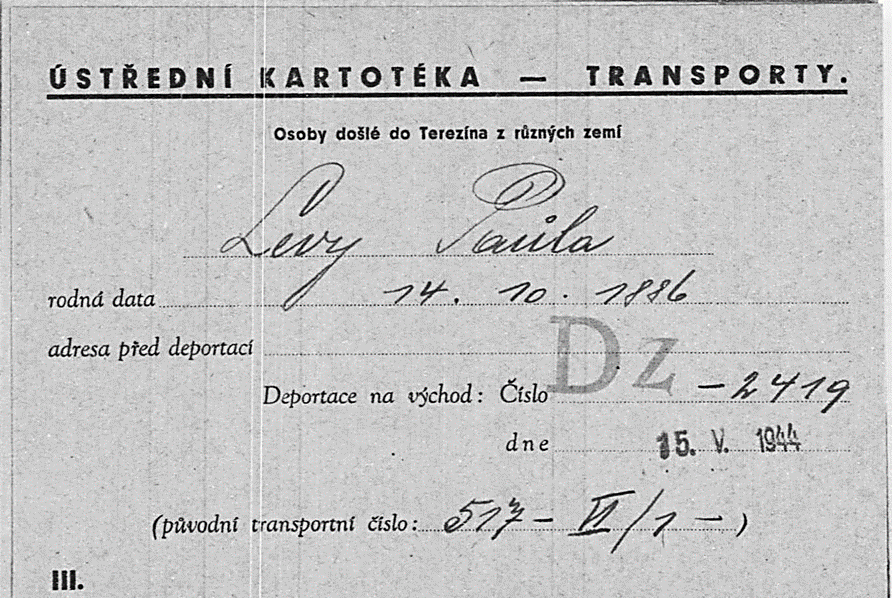 ÚSTŘEDNÍ KARTOTÉKA — TRANSPORTY.
Osoby došlé do Terezína z různých zemí
Levy Paula
rodná data 14. 10. 1886
adresa před deportací
Deportace na východ: Číslo Dz - 2419
dne 15. V. 1944
(původní transportní číslo: 517 - VI/1 - )
III.